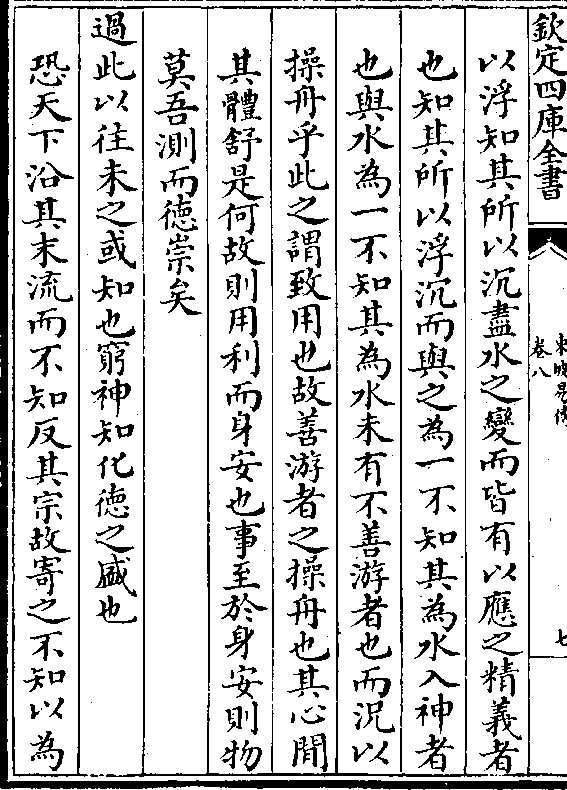 欽定四庫全書
東坡易傳
卷八
七
以浮知其所以沉盡水之變而皆有以應之精義者
也知其所以浮沉而與之為一不知其為水入神者
也與水為一不知其為水未有不善游者也而況以
操舟乎此之謂致用也故善游者之操舟也其心閒
其體舒是何故則用利而身安也事至於身安則物
莫吾測而徳崇矣
過此以往未之或知也窮神知化德之盛也
恐天下沿其末流而不知反其宗故寄之不知以為